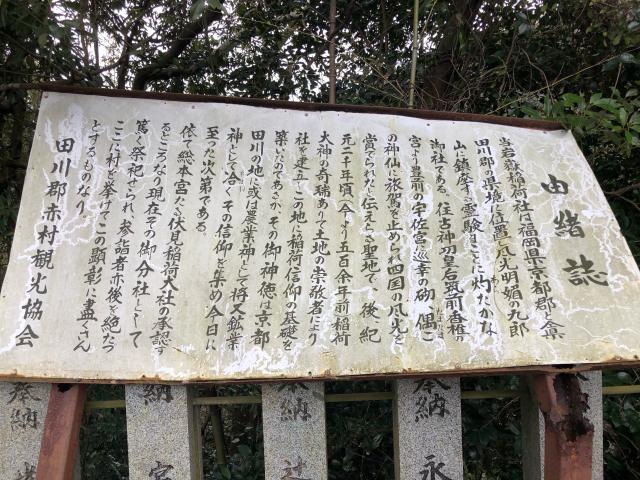 由緒誌
当岩嶽稲荷社は福岡県京都郡と
田川郡の県境に位置し風光明媚の九郎
山に鎮座する霊験ことに灼たかな
御社である。往古神功皇后筑前香椎の
宮より豊前の宇佐宮へ巡幸の砌、偶こ
の神仙に旅駕を止められ四国の風光を
賞でられたと伝えらる聖地で、後紀
元二千年頃(今より五百余年前)稲荷
大神の奇瑞ありて土地の崇敬者により
社を建立しこの地に稲荷信仰の基礎を
築いたのであるがその御神徳は京都
田川の地に或は農業神として将又鉱業
神として洽くその信仰を集め今日に
至った次第である。
依て総本宮たる伏見稲荷大社の承認す
るところなり現在その御分社として
篤く祭祀せられ、参詣者亦後を絶たず
ここに村を挙げてこの顕彰に盡くさん
とするものなり。
田川郡赤村観光協会
奉納
永
奉納
辻
納
宮
奉納